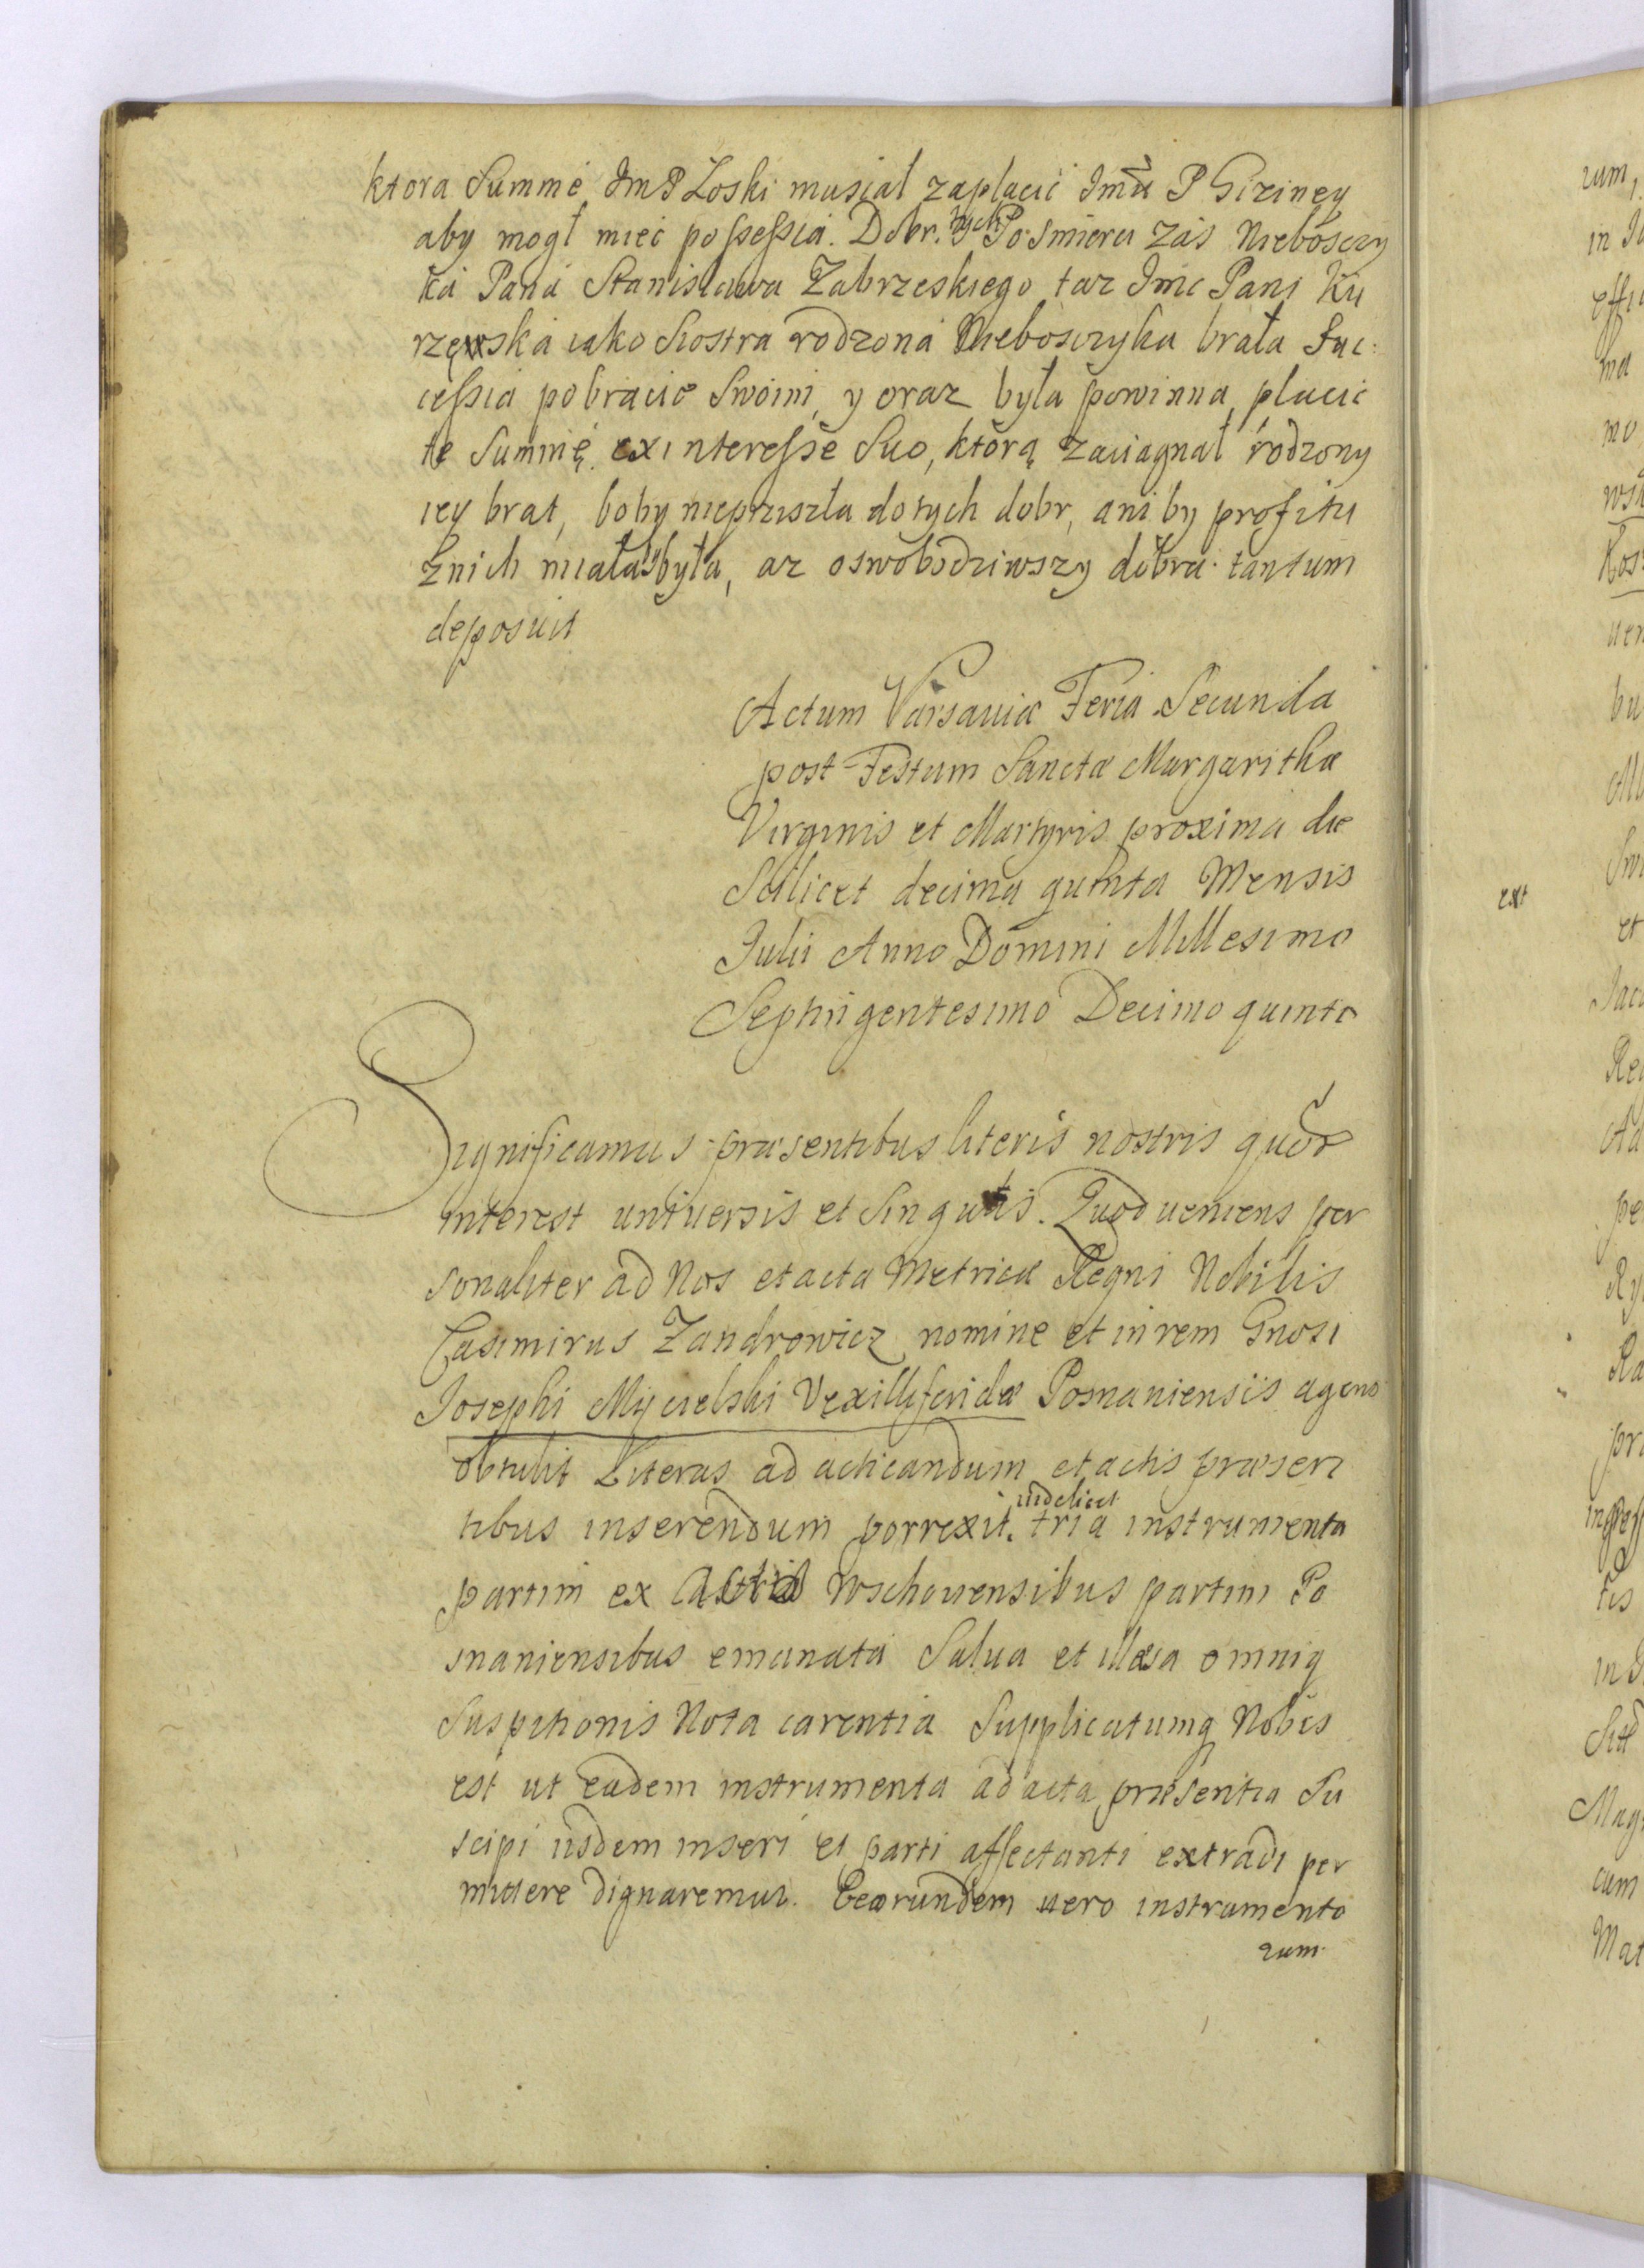 ktora Summe ImP Łoski musiał zapłacic Jmu P Giziney
aby mogł miec possessia. Dobr. tych Po Smierci zas Niebosczy
ka Pana Stanisława Zabrzeskiego taz Jmc Pani Ku
rzewska iako Siostra rodzona Nieboszczyka brała Suc:
cessia po bracie Swoim, y oraz była powinna, płacic
te Summę ex interesse Suo, ktorą zaciagnał rodzony
iey brat, boby nieprziszla do tych dobr, ani by profitu
znich miała była, az oswobodziwszy dobra. tantum
deposuit
Actum Varsaviæ Feria Secunda
post Festum Sanctæ Margarithæ
Virginis et Martyris proxima die
Scilicet decima quinta Mensis
Julii Anno Domini Millesimo
Septingentesimo Decimo quinto
Significamus præsentibus literis nostris quor
interest universis et Singulis. Quod veniens per
sonaliter ad Nos et acta Metricæ Regni Nobilis
Casimirus Zandrowicz nomine et in rem Gnosi
Josephi Mycielski Vexilliferidæ Posnaniensis agens
obtulit Literas ad acticandum et actis præsen
tibus inserendum porrexit. videlicet tria instrumenta
partim ex Wschovensibus partim Po
snaniensibus emanata Salva et illæsa omniq
Suspitionis Nota carentia Supplicatumq Nobis
est ut eadem instrumenta ad acta præsentia Su
scipi iisdem inseri et parti affectanti extradi per
mittere dignaremur. Eeorundem vero instrumento
rum
rum,
in
ma
et
ext
pe
cum
Mat